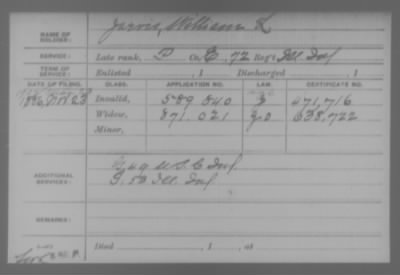 NAME OF SOLDIER: Jarvis, William L
SERVICE: Late rank, P Co. E, 72 Reg't Ill. Inf
TERM OF SERVICE: Enlisted , 1 Discharged , 1
DATE OF FILING. CLASS. APPLICATION NO. LAW. CERTIFICATE NO.
1886, Nov 23 Invalid, 589 840 471,716
Widow, 871 021 G.O 638,722
Minor,
ADDITIONAL SERVICES: 49 U.S.C. Inf
50 Ill. Inf
REMARKS:
Died , 1 , at